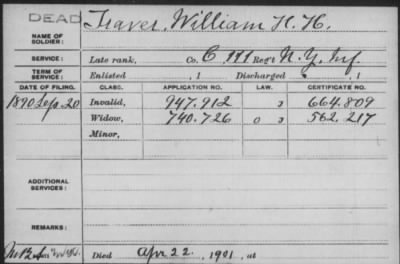 DEAD
NAME OF SOLDIER: Traver, William H. H.
SERVICE: Late rank, Co. C 111 Reg't N.Y. Inf.
TERM OF SERVICE: Enlisted , 1 Discharged , 1
DATE OF FILING. CLASS. APPLICATION NO. LAW. CERTIFICATE NO.
1890 Sep. 20 Invalid, 947.912 664.809
Widow, 740.726 562.217
Minor,
ADDITIONAL SERVICES:
REMARKS:
Died Apr 22, 1901, at